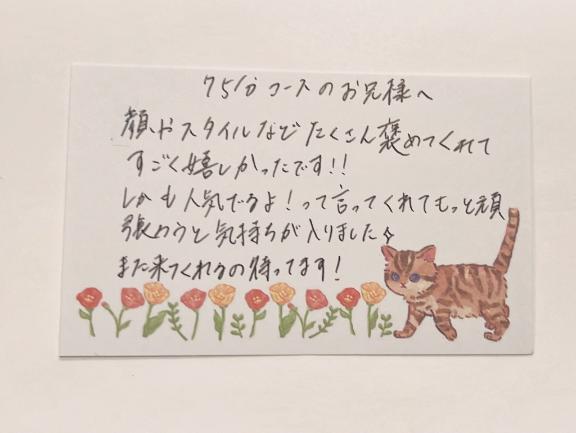 75分コースのお兄様へ
顔やスタイルなどたくさん褒めてくれて
すごく嬉しかったです!!
しかも人気でるよ!って言ってくれてもっと頑
張ろうと気持ちが入りました✧
また来てくれるの待ってます!